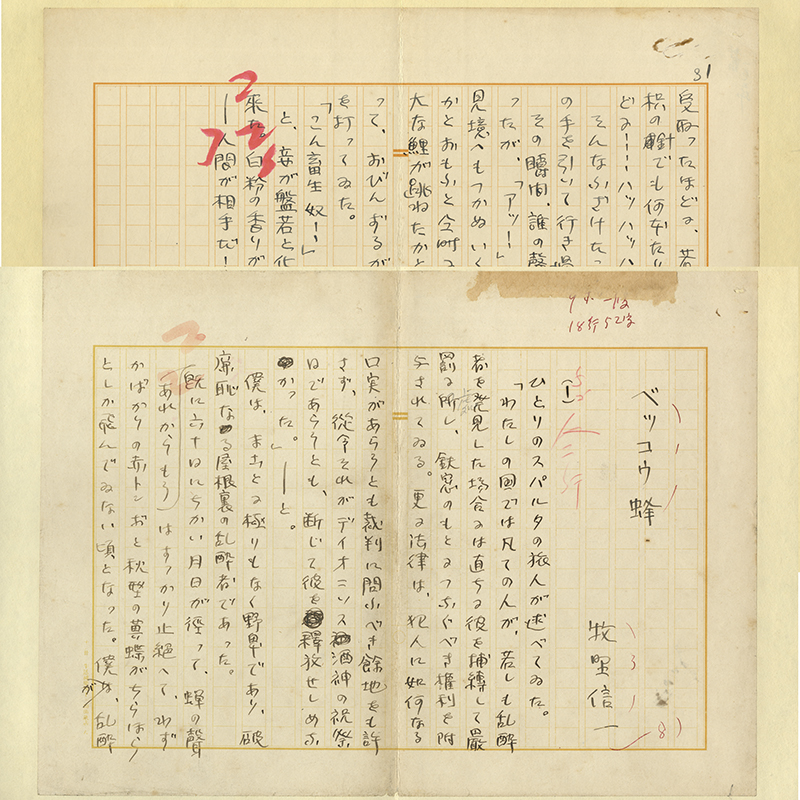 31
受取つたほどに、若
の鞭でも何本たり
どに――ハッハッハ
そんなふざけたつ
の手を引いて行き過
その瞬間、誰の聲
つたが、「アッ!」
見境へもつかぬいく
かとおもふと今時に
大な鯉が跳ねたかと
つて、おびんずるが
を打つてゐた。
「こん畜生奴――」
と、妾が盤若と化
来た。白粉の香りが
―人間が相手だ!
18行52字
ベツコウ蜂
牧野信一
8
(一)
ひとりのスパルタの旅人が述べてゐた。
「わたしの国では凡ての人が、若しも乱酔
者を発見した場合には直ちに彼を捕縛して嚴
罰に所し、鉄窓のもとにつなぐべき権利を附
与されてゐる。更に法律は、犯人に如何なる
口実があらうとも裁判に問ふべき餘地をも許
さず、從令それがデイオニソス酒神の祝祭
日であらうとも、断じて彼を釋放せしめな
かつた。」――と。
僕は、まことに極りもなく野卑であり、破
廉恥なる屋根裏の乱酔者であつた。
既に六十日にちかい月日が徑つて、蜂の聲
(あれからもう)はすつかり止絶へて、わず
かばかりの赤トンボと秋型の黄蝶がちらほら
としか飛んでゐない頃となつた。僕が、乱酔